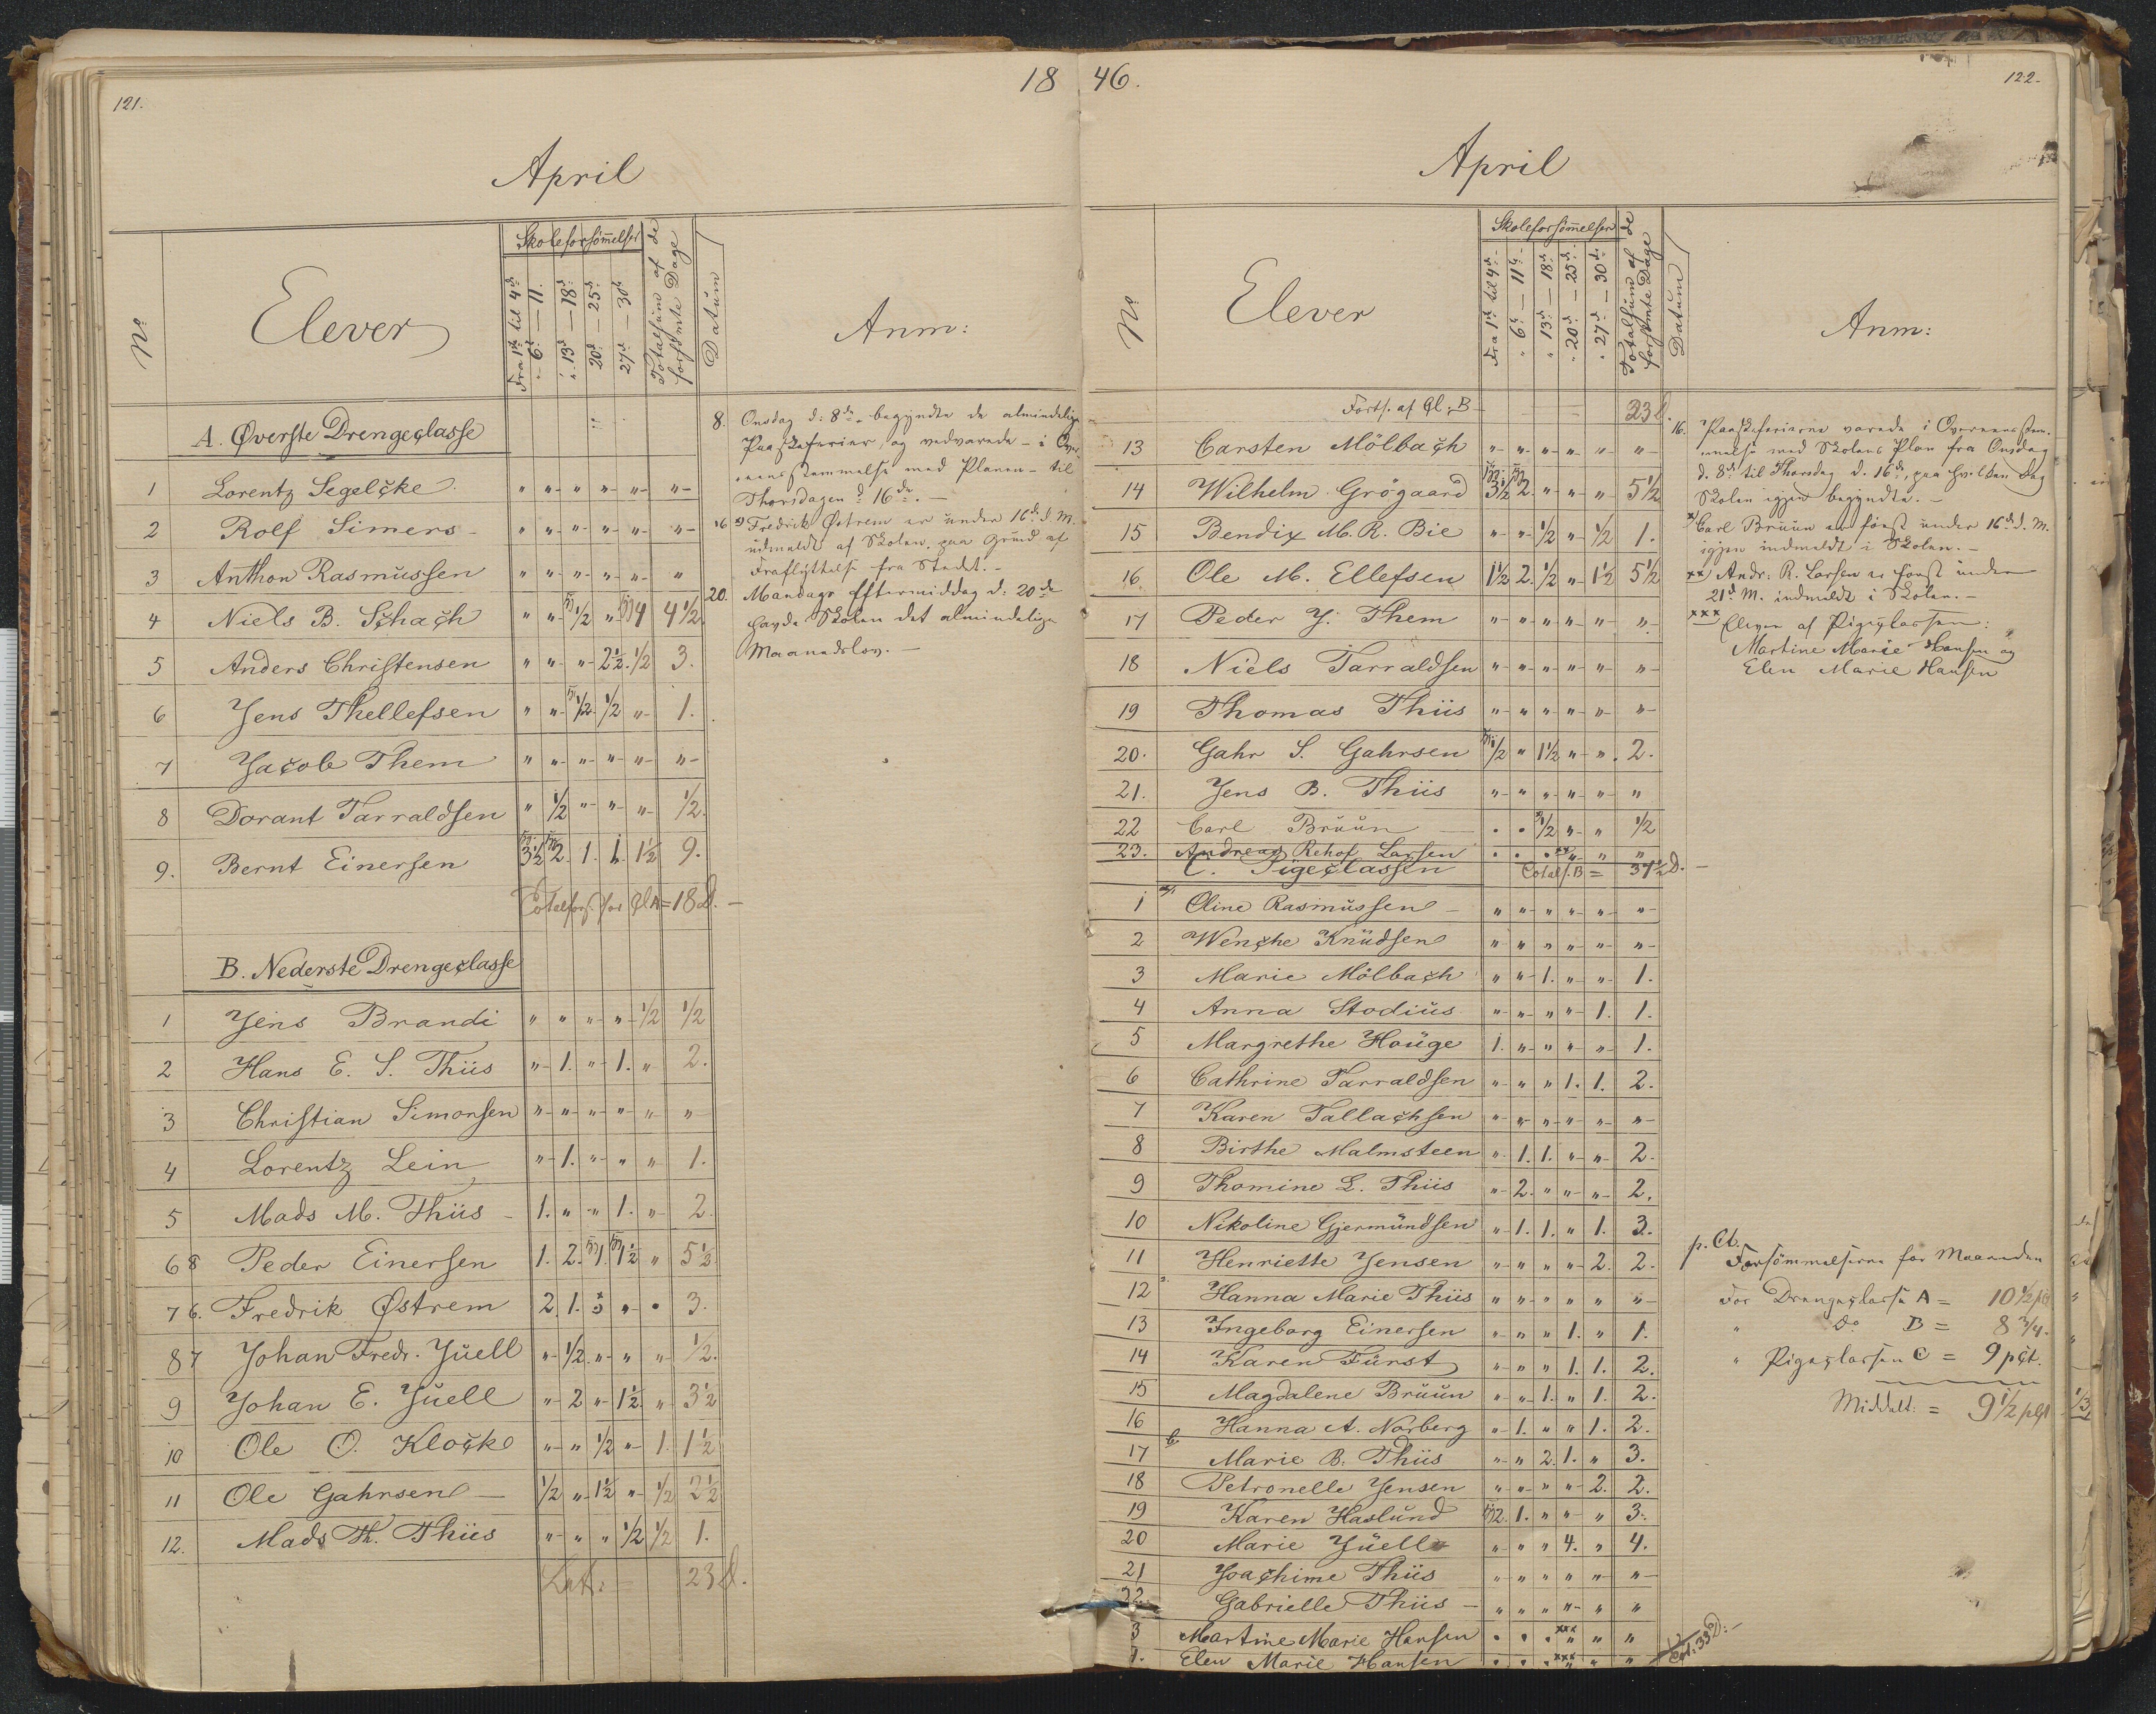 121.
18
April
No
Elever
Skoleforsömmelser
Fra 1ste til 4de
" 6te — 11.
" 13de — 18de
20de — 25de
27de — 30te
Totalsum af de forsömte Dage
Datum
Anm:
A. Øverste Drengeclasse
1 Lorentz Segelcke " " " " " "
2 Rolf Simers " " " " " "
3 Anthon Rasmussen " " " " " "
4 Niels B. Schach " " 1/2 " 4 4 1/2
5 Anders Christensen " " " 2 1/2 1/2 3.
6 Jens Thellefsen " " 1/2 1/2 " 1.
7 Jacob Them " " " " " "
8 Dorant Tarraldsen " 1/2 " " " 1/2.
9. Bernt Einersen 3 1/2 2. 1. 1. 1 1/2 9.
Totalfors. for Cl A = 18 D.
B. Nederste Drengeclasse
1 Jens Brandi " " " " 1/2 1/2
2 Hans E. S. Thiis " 1. " 1. " 2.
3 Christian Simonsen " " " " " "
4 Lorentz Lein " 1. " " " 1.
5 Mads M. Thiis 1. " " 1. " 2.
6 8 Peder Einersen 1. 2. 1. 1 1/2 " 5 1/2
7 6. Fredrik Østrem 2. 1. x " • 3.
8 7 Johan Fredr. Juell " 1/2 " " " 1/2.
9 Johan E. Juell " 2 " 1 1/2 " 3 1/2
10 Ole O. Klocke " " 1/2 " 1. 1 1/2
11 Ole Gahrsen 1/2 " 1 1/2 " 1/2 2 1/2
12. Mads Th. Thiis " " " 1/2 1/2 1.
Lat: = 23 D.
8. Onsdag d: 8de begyndte de almindelige
Paaskeferier, og vedvarede – i Over-
eensstemmelse med Planen – til
Thorsdagen d. 16de. –
16 x) Fredrik Østrem er under 16de d. M.
udmeldt af Skolen, paa Grund af
Fraflyttelse fra Stedet. –
20. Mandags Eftermiddag d: 20de
havde Skolen det almindelige
Maanedslov. –
46.
122.
April
No
Elever
Skoleforsömmelser
Fra 1ste til 4de
" 6te — 11te
" 13de — 18de
" 20de — 25de
" 27de — 30te
Totalsum af de forsömte Dage
Datum
Anm:
Forts. af Cl. B 23 D.
13 Carsten Mölbach " " " " " "
14 Wilhelm Grögaard 3 1/2 2. " " " 5 1/2
15 Bendix M. R. Bie " " 1/2 " 1/2 1.
16 Ole M. Ellefsen 1 1/2 2. 1/2 " 1 1/2 5 1/2
17 Peder J. Them " " " " " "
18 Niels Tarraldsen " " " " " "
19 Thomas Thiis " " " " " "
20. Gahr S. Gahrsen 1/2 " 1 1/2 " " 2.
21. Jens B. Thiis " " " " " "
22 Carl Bruun • • 1/2 " " 1/2
23. Andreas Rehof Larsen • • • xx " " "
C. Pigeclassen Total f. B = 37 1/2 D. –
1 Oline Rasmussen " " " " " "
2 Wenche Knudsen " " " " " "
3 Marie Mölbach " " 1. " " 1.
4 Anna Stodius " " " " 1. 1.
5 Margrethe Houge 1. " " " " 1.
6 Cathrine Tarraldsen " " " 1. 1. 2.
7 Karen Tallachsen " " " " " "
8 Birthe Malmsteen " 1. 1. " " 2.
9 Thomine L. Thiis " 2. " " " 2.
10 Nikoline Gjermundsen " 1. 1. " 1. 3.
11 Henriette Jensen " " " " 2. 2.
12 Hanna Marie Thiis " " " " " "
13 Ingeborg Einersen " " " 1. " 1.
14 Karen Fürst " " " 1. 1. 2.
15 Magdalene Bruun " " 1. " 1. 2.
16 Hanna A. Norberg " 1. " " 1. 2.
17 Marie B. Thiis " " 2. 1. " 3.
18 Petronelle Jensen " " " " 2. 2.
19 Karen Haslund 2. 1. " " " 3.
20 Marie Juell " " " 4. " 4.
21 Joachime Thiis " " " " " "
22. Gabrielle Thiis " " " " " "
3 Martine Marie Hansen • • • xxx " " "
4. Elen Marie Hansen • • • xxx " " "
Lat: 33 D. –
16. Paaskeferierne varede i Overeensstem-
melse med Skolens Plan fra Onsdag
d. 8de til Thorsdag d. 16de, paa hvilken Dag
Skolen igjen begyndte. –
x) Carl Bruun er först under 16de d. M.
igjen indmeldt i Skolen. –
xx) Andr: R. Larsen er först under
21de M. indmeldt i Skolen. –
xxx Eleven af Pigeclassen:
Martine Marie Hansen og
Elen Marie Hansen
p. Ct.
Forsömmelserne for Maaneden
for Drengeclasse A = 10 1/2 pCt
" Do B = 8 3/4.
" Pigeclassen C = 9 pCt.
Middelt: = 9 1/2 pCt